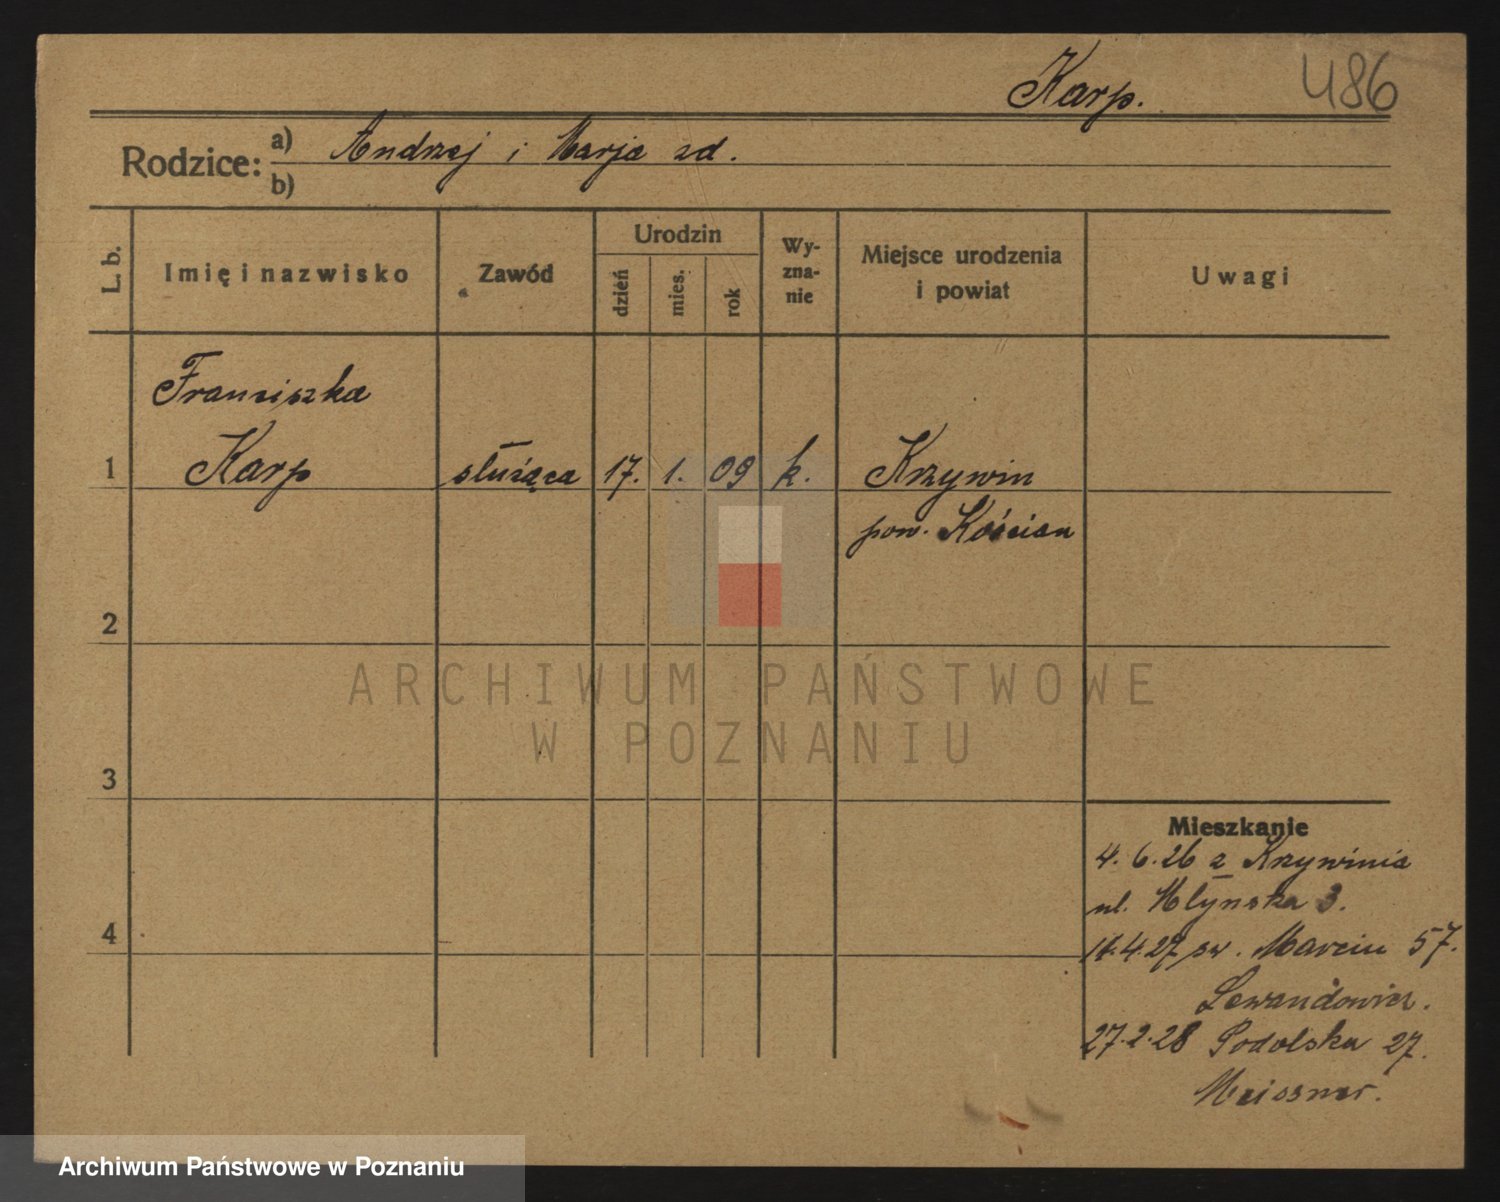 Karp. 486
Rodzice: a) Andrzej i Marja zd.
b)
L. b.
Imię i nazwisko
Zawód
Urodzin
dzień
mies.
rok
Wy-
zna-
nie
Miejsce urodzenia
i powiat
Uwagi
Franciszka
1 Karp służąca 17. 1. 09 k. Krzywin
pow. Kościan
2
3
4
ARCHIWUM PAŃSTWOWE
W POZNANIU
Mieszkanie
4. 6. 26 z Krzywinia
ul. Młyńska 3.
4. 27 św. Marcin 57.
Lewandowicz.
27. 2. 28 Podolska 27.
Meissner.
Archiwum Państwowe w Poznaniu